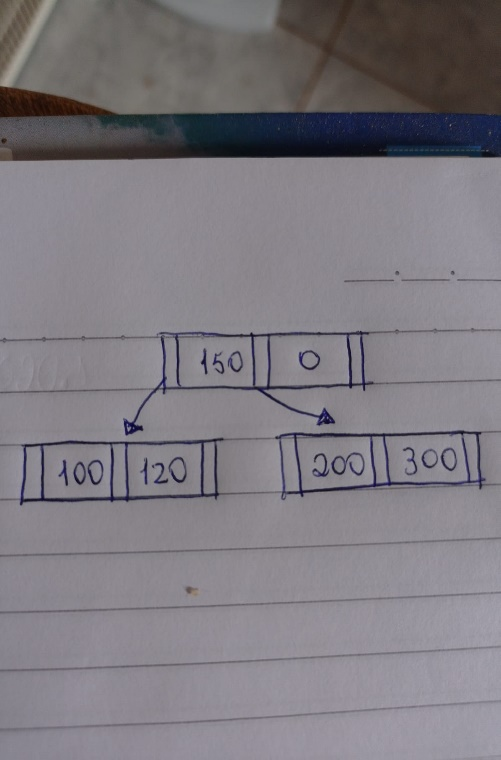 150 0
100 120 200 300